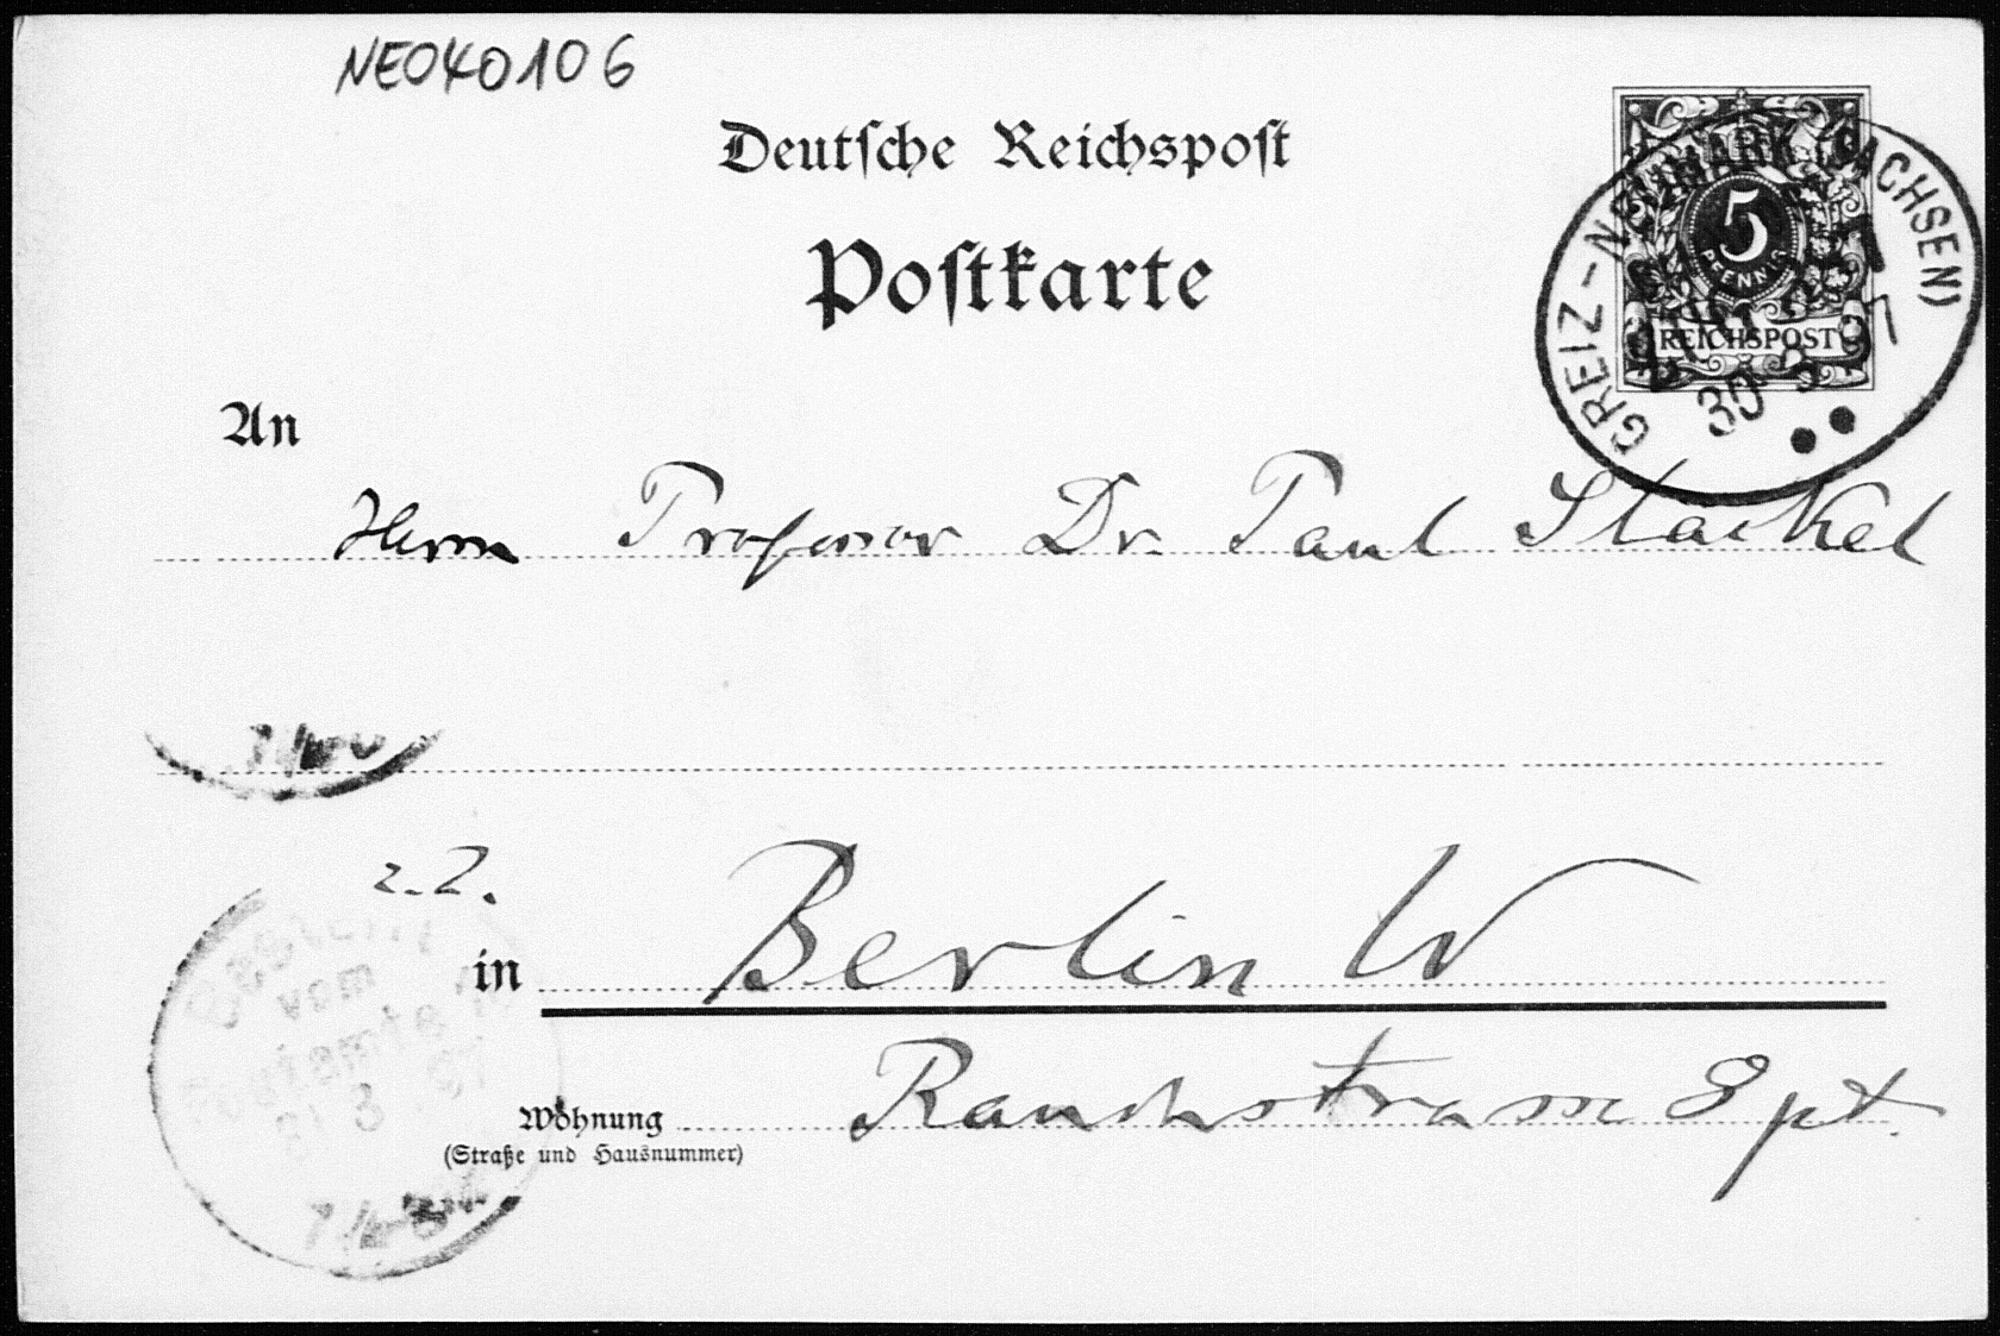 NE040106
Deutsche Reichspost
Postkarte
5
PFENNIG
REICHSPOST
GREIZ - NEUMARK (SACHSEN)
30 3 97
An
Herrn Professor Dr. Paul Stäckel
z. Z.
in Berlin W
Bestellt
vom
Postamte
31 3 97
Wohnung Rauchstrasse 8 pt.
(Straße und Hausnummer)